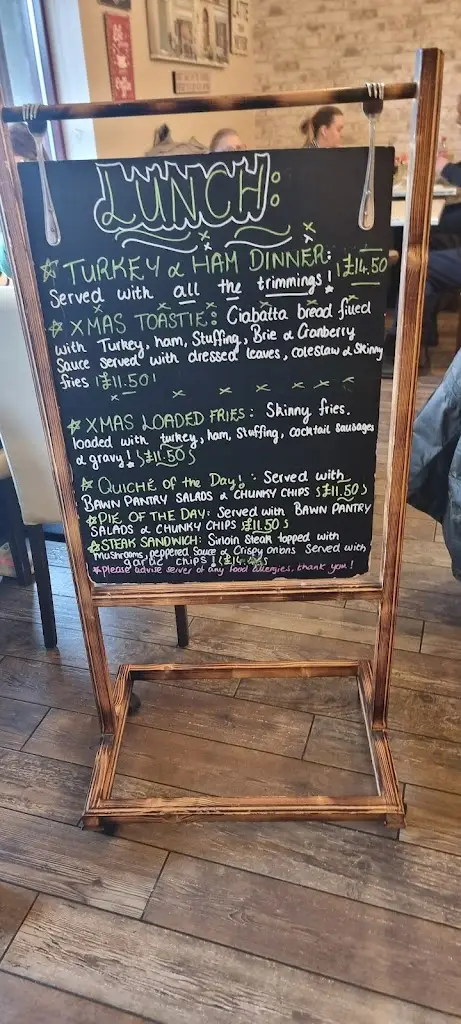 LUNCH:
☆ TURKEY & HAM DINNER: £14.50
Served with all the trimmings!
☆ XMAS TOASTIE: Ciabatta bread filled
with Turkey, ham, Stuffing, Brie & Cranberry
Sauce served with dressed leaves, coleslaw & Skinny
fries £11.50
☆ XMAS LOADED FRIES: Skinny fries,
loaded with turkey, ham, Stuffing, cocktail sausages
& gravy! £11.50
☆ QUICHE of the Day!: Served with
BAWN PANTRY SALADS & CHUNKY CHIPS £11.50
☆ PIE OF THE DAY: Served with BAWN PANTRY
SALADS & CHUNKY CHIPS £11.50
☆ STEAK SANDWICH: Sirloin Steak topped with
mushrooms, peppered sauce & Crispy onions Served with
garlic chips!
☆ Please advise server of any food allergies, thank you!